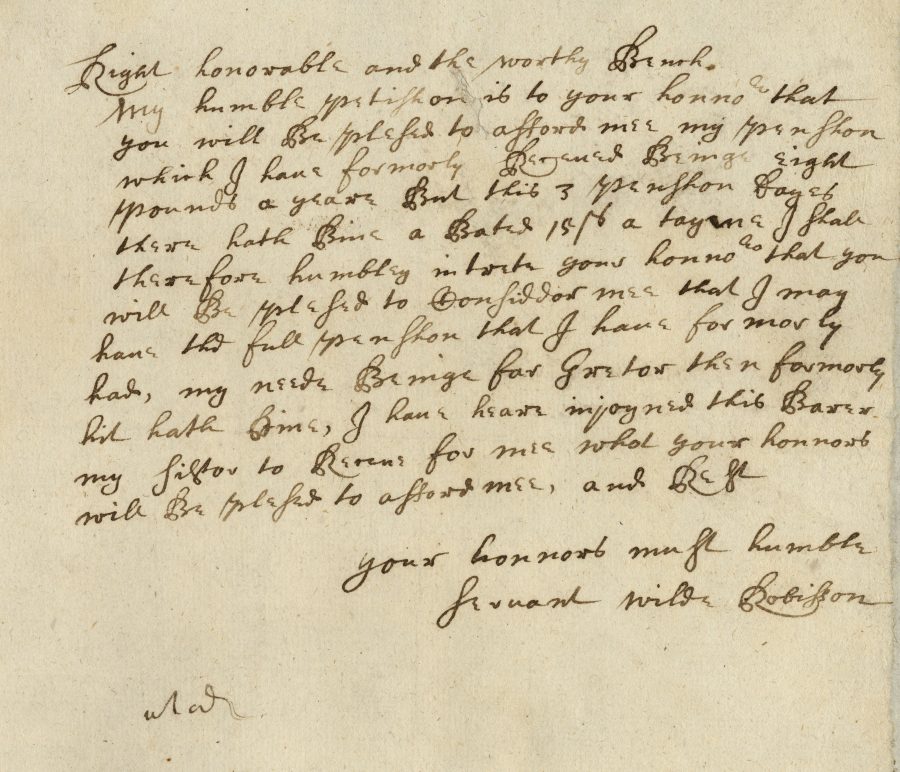 Right honorable and the worthy Bench.
My humble petishon is to your honnors that
you will Be plesed to afford mee my penshon
which I have formorly Receved Beinge eight
pounds a yeare But this 3 penshon dayes
there hath Bine a Bated a tayme I shall
therefore humbley intrete your honnors that you
will Be plesed to Considdor mee that I may
have the full penshon that I have formorly
had, my neede Beinge far Gretor then formorly
hit hath Bine, I have heare injoyned this Barer
my sistor to Receve for mee what your honnors
will Be plesed to afford mee, and Rest
your honnors must humble
servant wilde Robisson